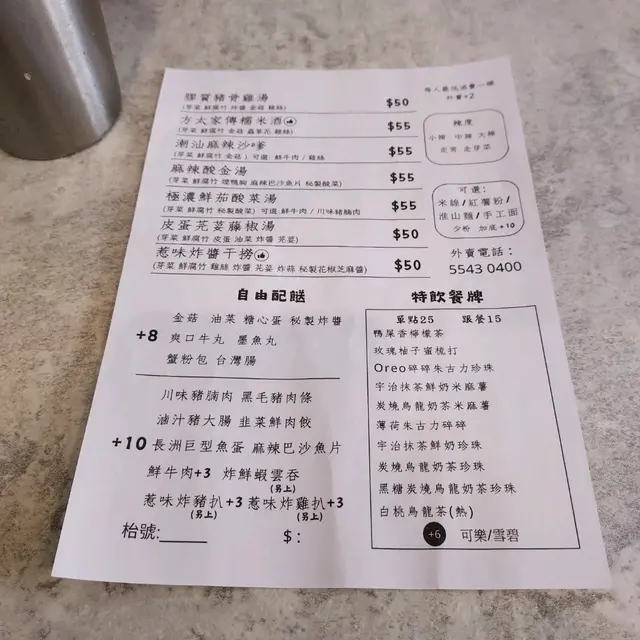 膠質豬骨雞湯 $50
(芽菜 鮮腐竹 炸醬 金菇 雞絲)
方太家傳糯米酒 $55
(芽菜 鮮腐竹 金菇 蟲草花 雞絲)
潮汕麻辣沙嗲 $55
(芽菜 鮮腐竹 金菇) 可選 鮮牛肉/雞絲
麻辣酸金湯 $55
(芽菜 鮮腐竹 煙鴨胸 麻辣巴沙魚片 秘製酸菜)
極濃鮮茄酸菜湯 $55
(芽菜 鮮腐竹 秘製酸菜) 可選 鮮牛肉/川味豬腩肉
皮蛋芫荽藤椒湯 $50
(芽菜 鮮腐竹 皮蛋 油菜 炸醬 芫荽)
惹味炸醬干撈 $50
(芽菜 鮮腐竹 雞絲 炸醬 芫荽 炸蒜 秘製花椒芝麻醬)
每人最低消費一碗
外賣+2
辣度
小辣 中辣 大辣
走青 走芽菜
可選:
米線/紅薯粉/
淮山麵/手工面
少粉 加底+10
外賣電話:
5543 0400
自由配餸
+8
金菇 油菜 糖心蛋 秘製炸醬
爽口牛丸 墨魚丸
蟹粉包 台灣腸
+10
川味豬腩肉 黑毛豬肉條
滷汁豬大腸 韮菜鮮肉餃
長洲巨型魚蛋 麻辣巴沙魚片
鮮牛肉+3 炸鮮蝦雲吞
(另上)
惹味炸豬扒+3 惹味炸雞扒+3
(另上) (另上)
枱號: $:
特飲餐牌
單點25 跟餐15
鴨屎香檸檬茶
玫瑰柚子蜜梳打
Oreo碎碎朱古力珍珠
宇治抹茶鮮奶米麻薯
炭燒烏龍奶茶米麻薯
薄荷朱古力碎碎
宇治抹茶鮮奶珍珠
炭燒烏龍奶茶珍珠
黑糖炭燒烏龍奶茶珍珠
白桃烏龍茶(熱)
+6 可樂/雪碧